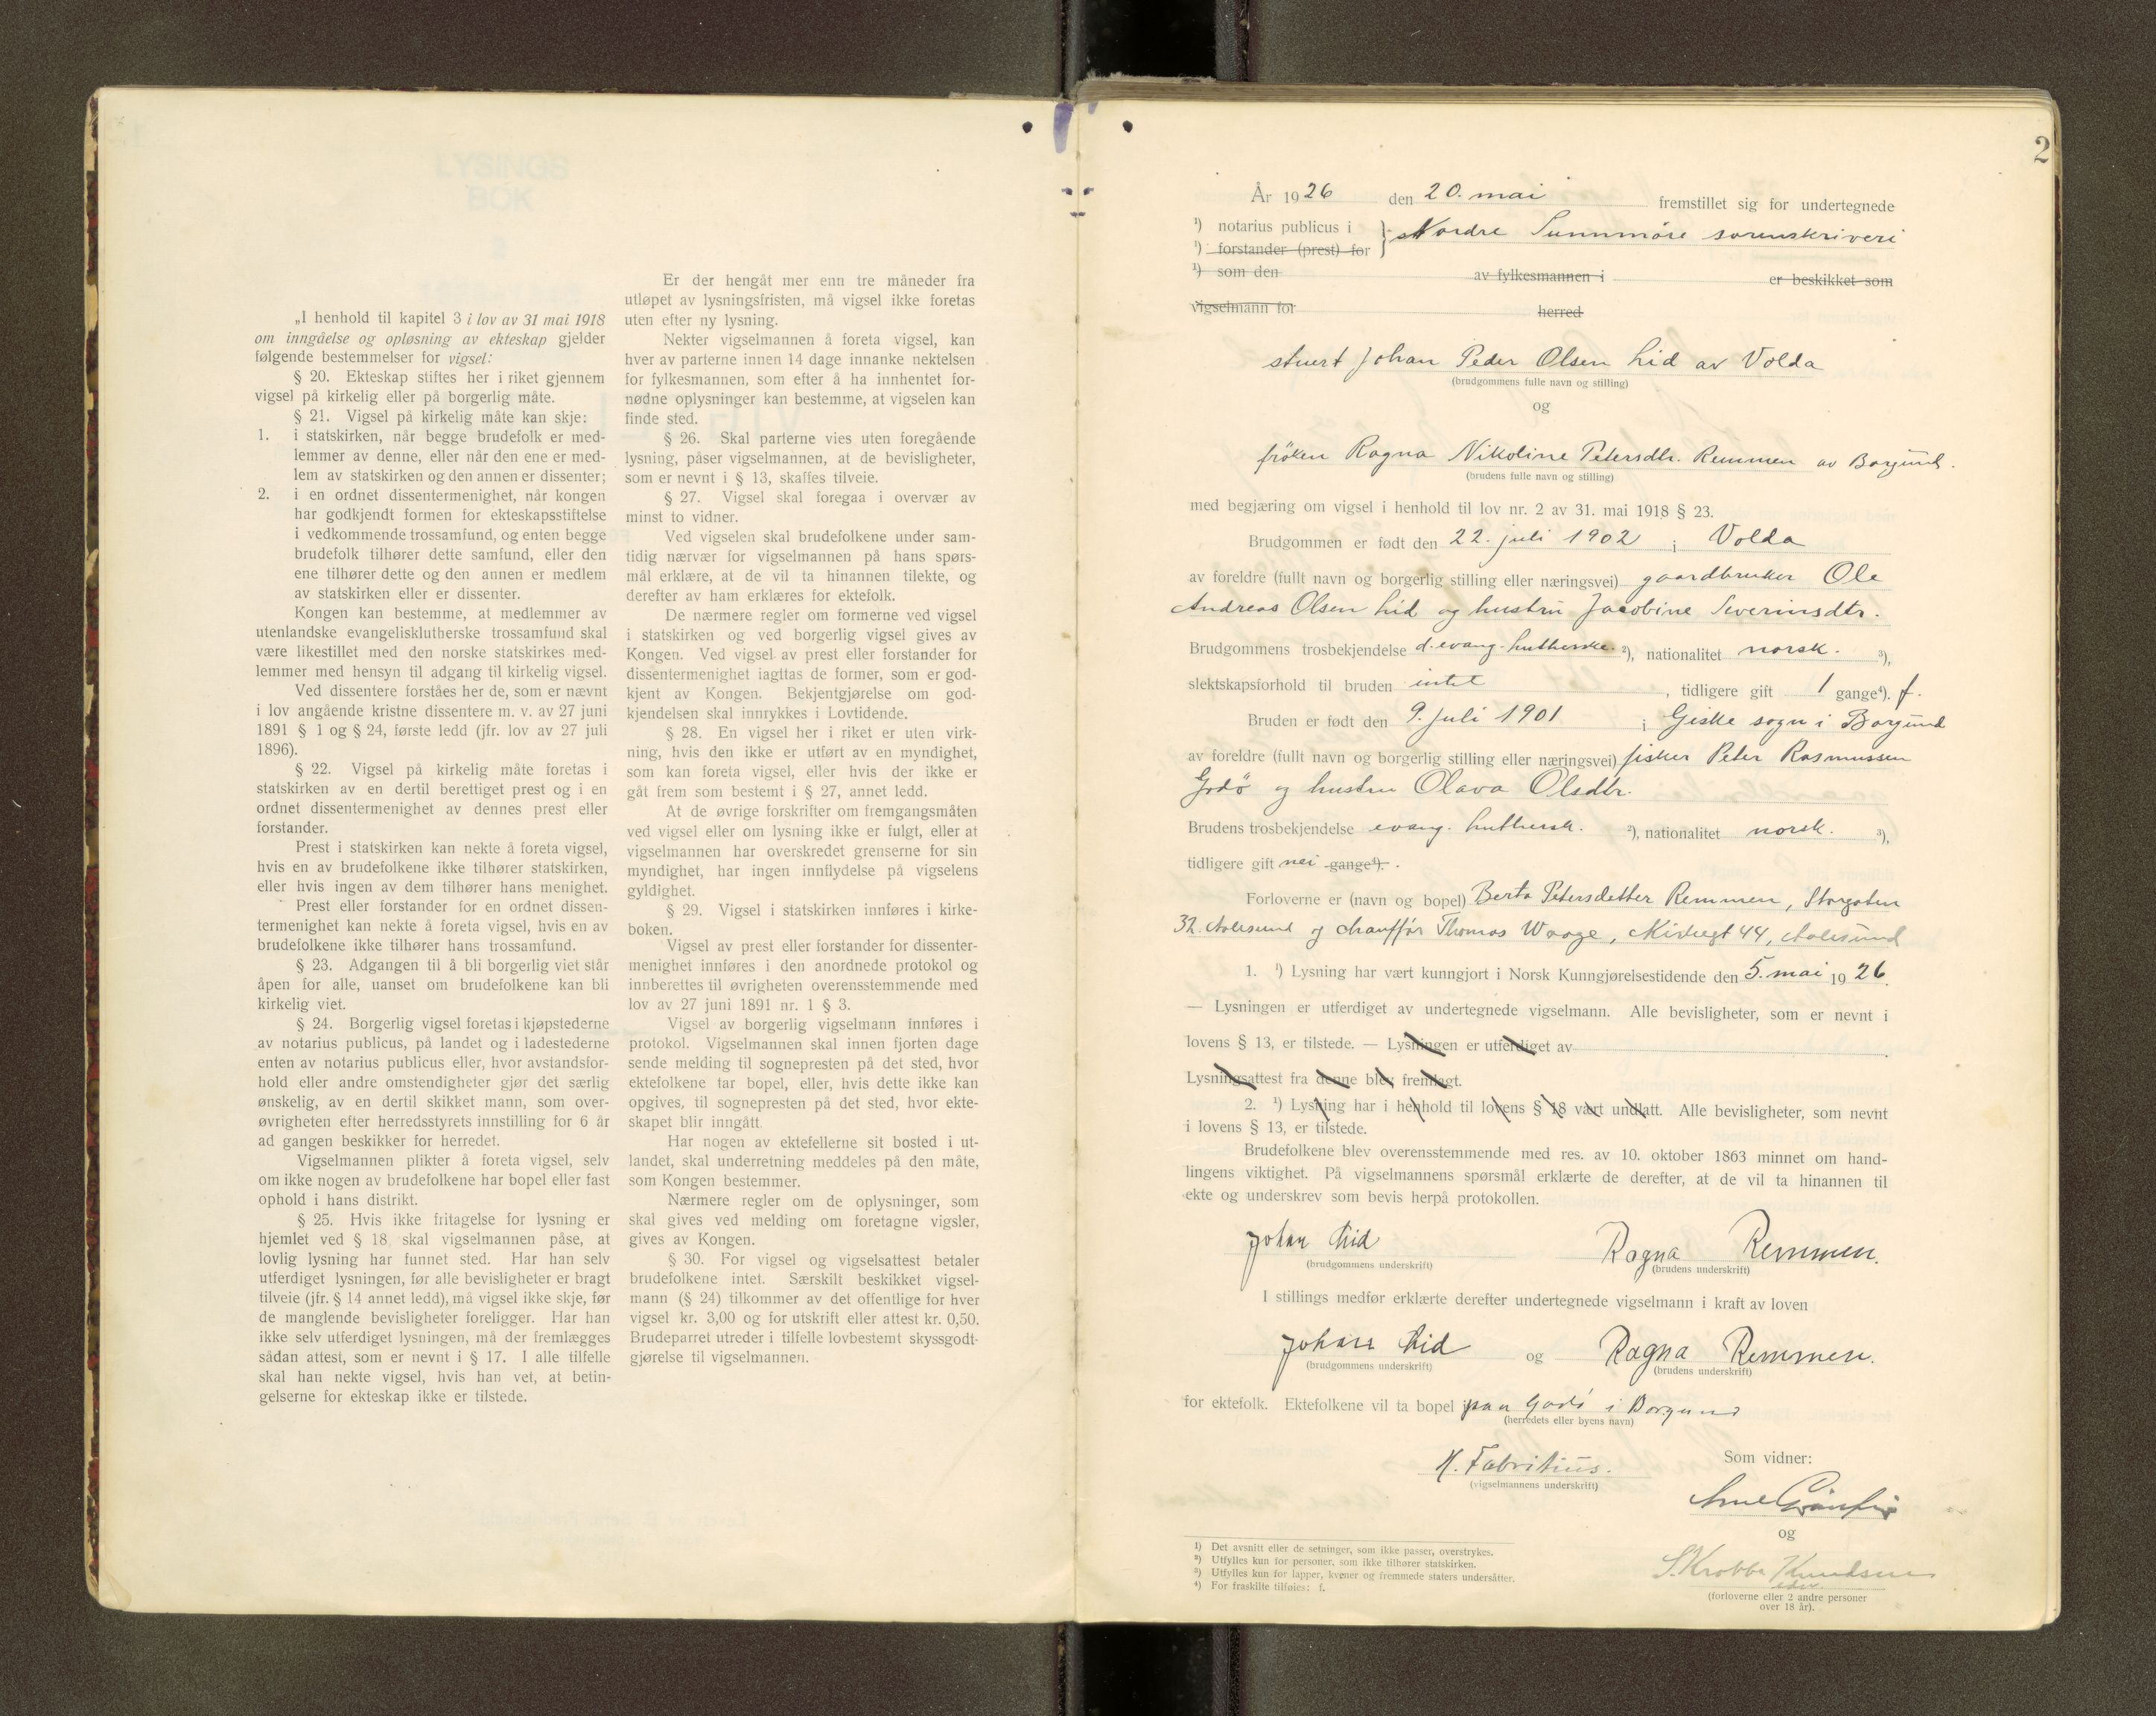 „I henhold til kapitel 3 i lov av 31 mai 1918
om inngåelse og opløsning av ekteskap gjelder
følgende bestemmelser for vigsel:
§ 20. Ekteskap stiftes her i riket gjennem
vigsel på kirkelig eller på borgerlig måte.
§ 21. Vigsel på kirkelig måte kan skje:
1. i statskirken, når begge brudefolk er med-
lemmer av denne, eller når den ene er med-
lem av statskirken og den annen er dissenter;
2. i en ordnet dissentermenighet, når kongen
har godkjendt formen for ekteskapsstiftelse
i vedkommende trossamfund, og enten begge
brudefolk tilhører dette samfund, eller den
ene tilhører dette og den annen er medlem
av statskirken eller er dissenter.
Kongen kan bestemme, at medlemmer av
utenlandske evangelisklutherske trossamfund skal
være likestillet med den norske statskirkes med-
lemmer med hensyn til adgang til kirkelig vigsel.
Ved dissentere forståes her de, som er nævnt
i lov angående kristne dissentere m. v. av 27 juni
1891 § 1 og § 24, første ledd (jfr. lov av 27 juli
1896).
§ 22. Vigsel på kirkelig måte foretas i
statskirken av en dertil berettiget prest og i en
ordnet dissentermenighet av dennes prest eller
forstander.
Prest i statskirken kan nekte å foreta vigsel,
hvis en av brudefolkene ikke tilhører statskirken,
eller hvis ingen av dem tilhører hans menighet.
Prest eller forstander for en ordnet dissen-
termenighet kan nekte å foreta vigsel, hvis en av
brudefolkene ikke tilhører hans trossamfund.
§ 23. Adgangen til å bli borgerlig viet står
åpen for alle, uanset om brudefolkene kan bli
kirkelig viet.
§ 24. Borgerlig vigsel foretas i kjøpstederne
av notarius publicus, på landet og i ladestederne
enten av notarius publicus eller, hvor avstandsfor-
hold eller andre omstendigheter gjør det særlig
ønskelig, av en dertil skikket mann, som over-
øvrigheten efter herredsstyrets innstilling for 6 år
ad gangen beskikker for herredet.
Vigselmannen plikter å foreta vigsel, selv
om ikke nogen av brudefolkene har bopel eller fast
ophold i hans distrikt.
§ 25. Hvis ikke fritagelse for lysning er
hjemlet ved § 18 skal vigselmannen påse, at
lovlig lysning har funnet sted. Har han selv
utferdiget lysningen, før alle bevisligheter er bragt
tilveie (jfr. § 14 annet ledd), må vigsel ikke skje, før
de manglende bevisligheter foreligger. Har han
ikke selv utferdiget lysningen, må der fremlægges
sådan attest, som er nevnt i § 17. I alle tilfelle
skal han nekte vigsel, hvis han vet, at betin-
gelserne for ekteskap ikke er tilstede.
Er der hengåt mer enn tre måneder fra
utløpet av lysningsfristen, må vigsel ikke foretas
uten efter ny lysning.
Nekter vigselmannen å foreta vigsel, kan
hver av parterne innen 14 dage innanke nektelsen
for fylkesmannen, som efter å ha innhentet for-
nødne oplysninger kan bestemme, at vigselen kan
finde sted.
§ 26. Skal parterne vies uten foregående
lysning, påser vigselmannen, at de bevisligheter,
som er nevnt i § 13, skaffes tilveie.
§ 27. Vigsel skal foregaa i overvær av
minst to vidner.
Ved vigselen skal brudefolkene under sam-
tidig nærvær for vigselmannen på hans spørs-
mål erklære, at de vil ta hinannen tilekte, og
derefter av ham erklæres for ektefolk.
De nærmere regler om formerne ved vigsel
i statskirken og ved borgerlig vigsel gives av
Kongen. Ved vigsel av prest eller forstander for
dissentermenighet iagttas de former, som er god-
kjent av Kongen. Bekjentgjørelse om god-
kjendelsen skal innrykkes i Lovtidende.
§ 28. En vigsel her i riket er uten virk-
ning, hvis den ikke er utført av en myndighet,
som kan foreta vigsel, eller hvis der ikke er
gåt frem som bestemt i § 27, annet ledd.
At de øvrige forskrifter om fremgangsmåten
ved vigsel eller om lysning ikke er fulgt, eller at
vigselmannen har overskredet grenserne for sin
myndighet, har ingen innflydelse på vigselens
gyldighet.
§ 29. Vigsel i statskirken innføres i kirke-
boken.
Vigsel av prest eller forstander for dissenter-
menighet innføres i den anordnede protokol og
innberettes til øvrigheten overensstemmende med
lov av 27 juni 1891 nr. 1 § 3.
Vigsel av borgerlig vigselmann innføres i
protokol. Vigselmannen skal innen fjorten dage
sende melding til sognepresten på det sted, hvor
ektefolkene tar bopel, eller, hvis dette ikke kan
opgives, til sognepresten på det sted, hvor ekte-
skapet blir inngått.
Har nogen av ektefellerne sit bosted i ut-
landet, skal underretning meddeles på den måte,
som Kongen bestemmer.
Nærmere regler om de oplysninger, som
skal gives ved melding om foretagne vigsler,
gives av Kongen.
§ 30. For vigsel og vigselsattest betaler
brudefolkene intet. Særskilt beskikket vigsel-
mann (§ 24) tilkommer av det offentlige for hver
vigsel kr. 3,00 og for utskrift eller attest kr. 0,50.
Brudeparret utreder i tilfelle lovbestemt skyssgodt-
gjørelse til vigselmannen.
2
År 1926 den 20. mai fremstillet sig for undertegnede
1) notarius publicus i } Nordre Sunnmöre sorenskriveri
1) forstander (prest) for
1) som den av fylkesmannen i er beskikket som
vigselmann for herred
stuert Johan Peder Olsen Lid av Volda
(brudgommens fulle navn og stilling)
og
fröken Ragna Nikoline Petersdtr. Remmen av Borgund.
(brudens fulle navn og stilling)
med begjæring om vigsel i henhold til lov nr. 2 av 31. mai 1918 § 23.
Brudgommen er født den 22. juli 1902 i Volda
av foreldre (fullt navn og borgerlig stilling eller næringsvei) gaardbruker Ole
Andreas Olsen Lid og hustru Jacobine Severinsdtr.
Brudgommens trosbekjendelse d. evang. Lutherske. 2), nationalitet norsk. 3),
slektskapsforhold til bruden intet , tidligere gift 1 gange4). f.
Bruden er født den 9. juli 1901 i Giske sogn i Borgund
av foreldre (fullt navn og borgerlig stilling eller næringsvei) fisker Peter Rasmussen
Godö og hustru Olava Olsdtr.
Brudens trosbekjendelse evang. Luthersk. 2), nationalitet norsk. 3),
tidligere gift nei gange4).
Forloverne er (navn og bopel) Berta Petersdatter Remmen, Storgaten
32. Aalesund og chaufför Thomas Waage, Kirkegt 44, Aalesund
1. 1) Lysning har vært kunngjort i Norsk Kunngjørelsestidende den 5. mai 1926.
— Lysningen er utferdiget av undertegnede vigselmann. Alle bevisligheter, som er nevnt i
lovens § 13, er tilstede. — Lysningen er utferdiget av
Lysningsattest fra denne blev fremlagt.
2. 1) Lysning har i henhold til lovens § 18 vært undlatt. Alle bevisligheter, som nevnt
i lovens § 13, er tilstede.
Brudefolkene blev overensstemmende med res. av 10. oktober 1863 minnet om hand-
lingens viktighet. På vigselmannens spørsmål erklærte de derefter, at de vil ta hinannen til
ekte og underskrev som bevis herpå protokollen.
Johan Lid Ragna Remmen.
(brudgommens underskrift) (brudens underskrift)
I stillings medfør erklærte derefter undertegnede vigselmann i kraft av loven
Johan Lid og Ragna Remmen.
(brudgommens underskrift) (brudens underskrift)
for ektefolk. Ektefolkene vil ta bopel paa Godö i Borgund
(herredets eller byens navn)
H. Fabritius. Som vidner:
(vigselmannens underskrift)
Arne
og
S. Krobbe Knudsen
(forloverne eller 2 andre personer
over 18 år).
1) Det avsnitt eller de setninger, som ikke passer, overstrykes.
2) Utfylles kun for personer, som ikke tilhører statskirken.
3) Utfylles kun for lapper, kvener og fremmede staters undersåtter.
4) For fraskilte tilføies: f.